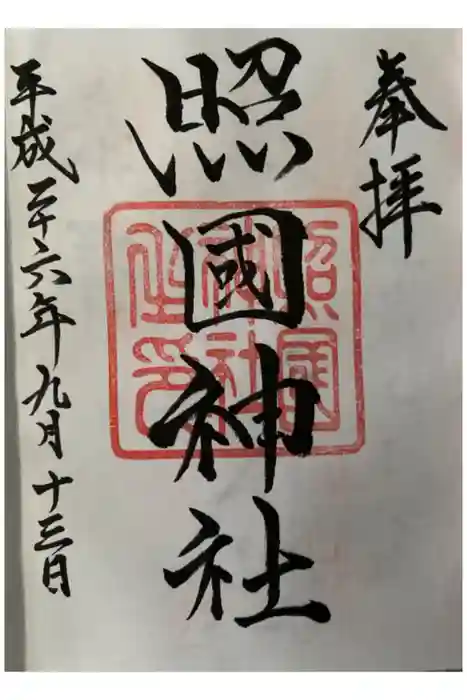 奉拝
照國神社
照国
神社
之印
平成二十六年九月十三日